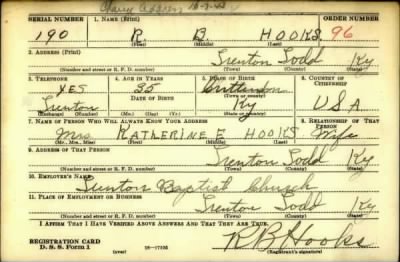 Change address 10-7-42
SERIAL NUMBER 1. NAME (Print) ORDER NUMBER
190 R B HOOKS 96
(First) (Middle) (Last)
2. ADDRESS (Print)
Trenton Todd Ky
(Number and street or R. F. D. number) (Town) (County) (State)
3. TELEPHONE 4. AGE IN YEARS 5. PLACE OF BIRTH 6. COUNTRY OF CITIZENSHIP
YES 35 Crittenden
(Town or county)
Trenton DATE OF BIRTH Ky USA
(Exchange) (Number) (Mo.) (Day) (Yr.) (State or country)
7. NAME OF PERSON WHO WILL ALWAYS KNOW YOUR ADDRESS 8. RELATIONSHIP OF THAT PERSON
Mrs KATHERINE E HOOKS Wife
(Mr., Mrs., Miss) (First) (Middle) (Last)
9. ADDRESS OF THAT PERSON
Trenton Todd Ky
(Number and street or R. F. D. number) (Town) (County) (State)
10. EMPLOYER'S NAME
Trenton Baptist Church
11. PLACE OF EMPLOYMENT OR BUSINESS
Trenton Todd Ky
(Number and street or R. F. D. number) (Town) (County) (State)
I AFFIRM THAT I HAVE VERIFIED ABOVE ANSWERS AND THAT THEY ARE TRUE.
REGISTRATION CARD
D. S. S. Form 1 (over) 16-17105 R B Hooks
(Registrant's signature)